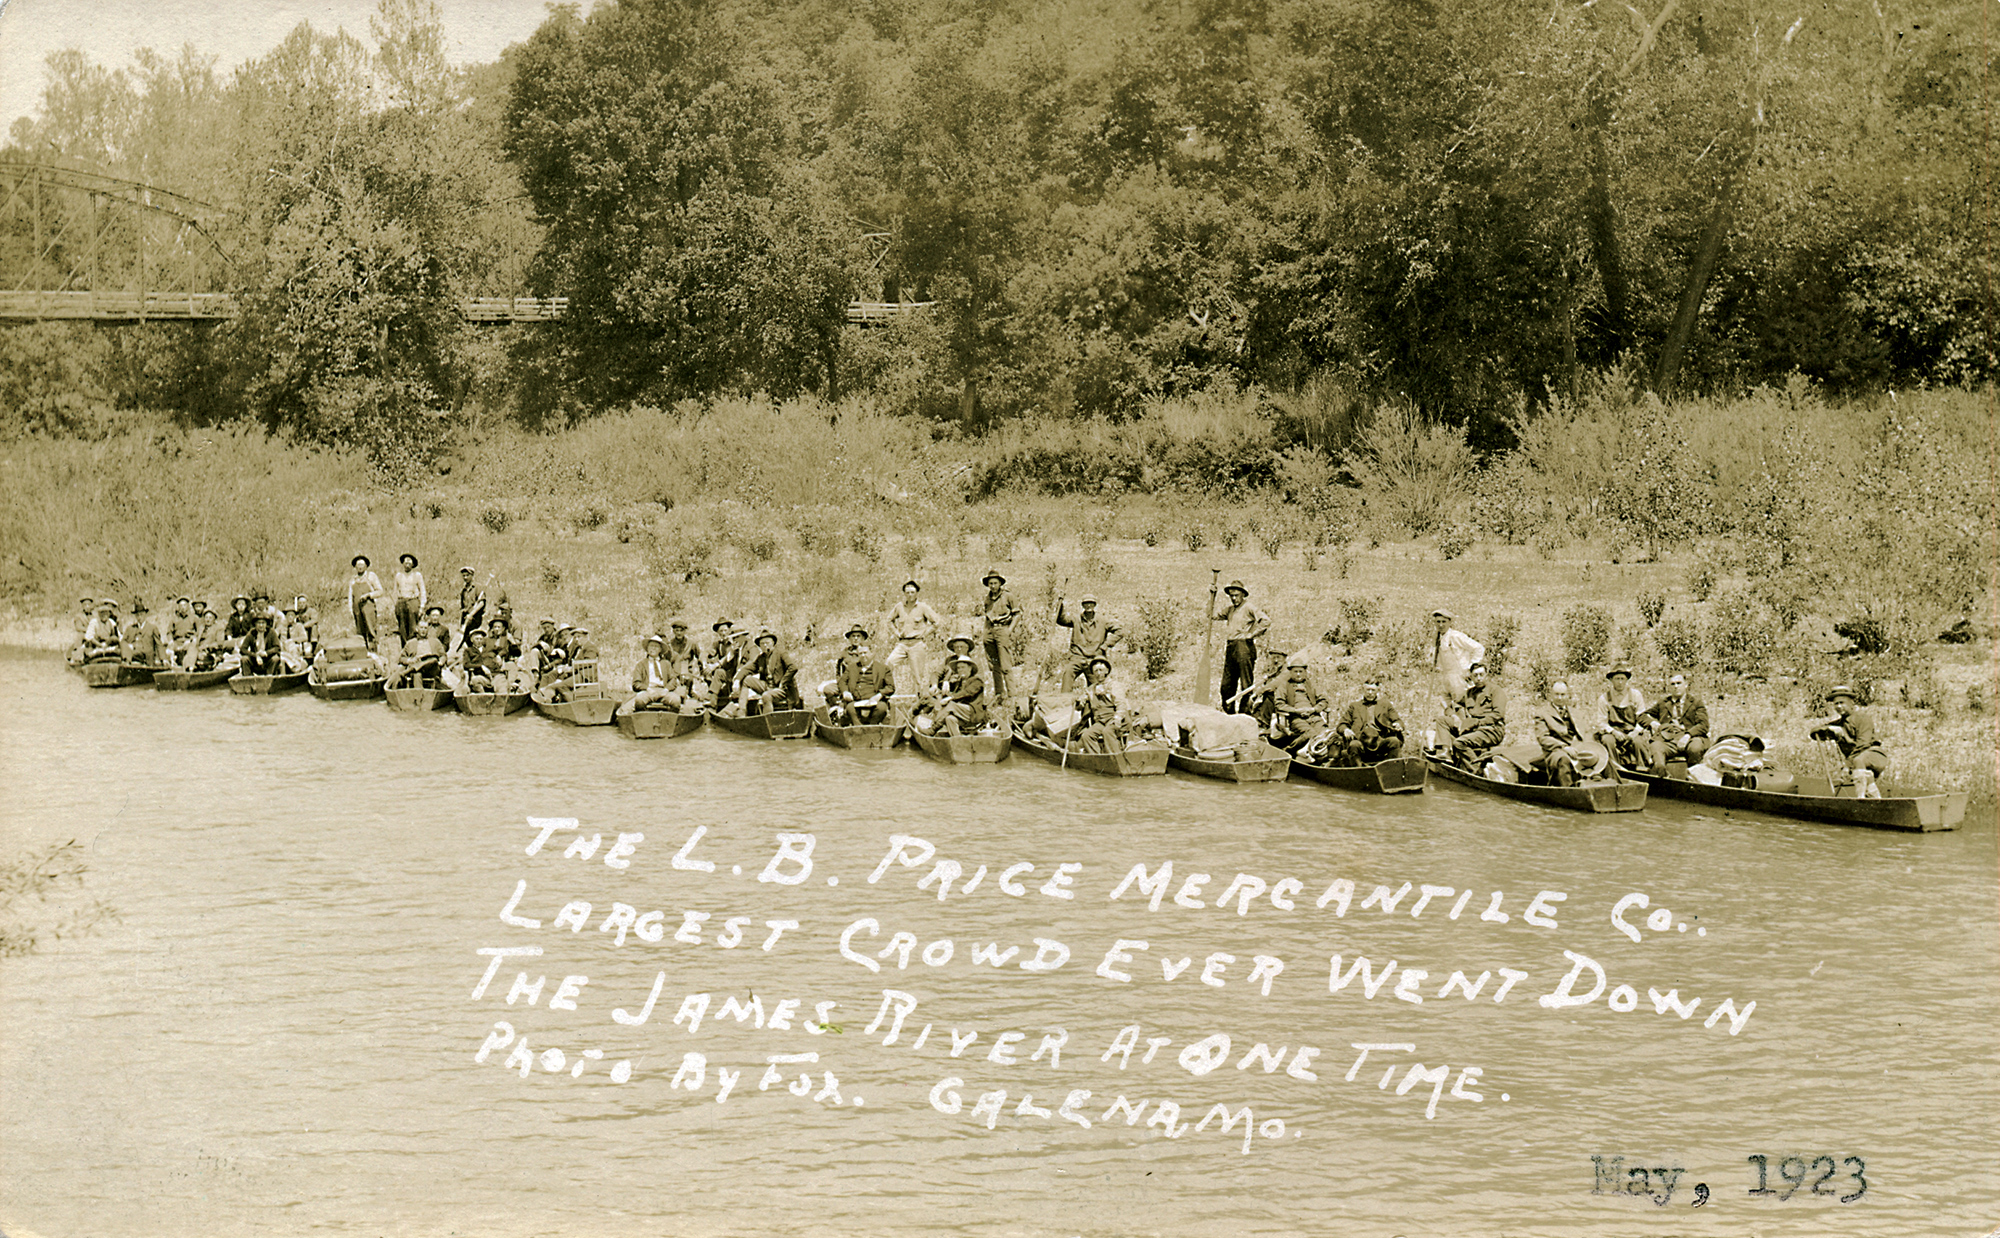 THE L. B. PRICE MERCANTILE CO..
LARGEST CROWD EVER WENT DOWN
THE JAMES RIVER AT ONE TIME.
PHOTO BY FOX. GALENA, MO.
May, 1923